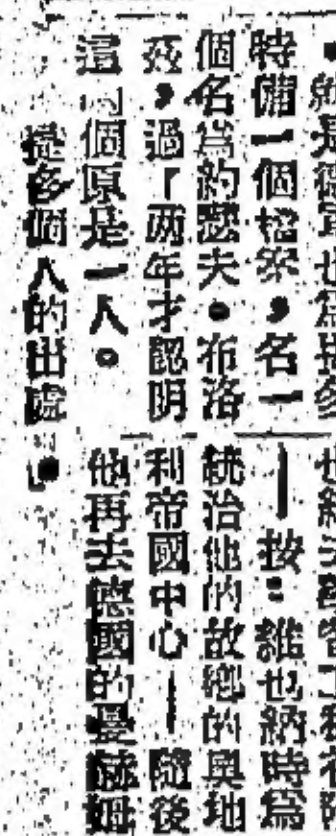 特備一個檔案，名一
個名為約瑟夫。布洛
茲，過「两年才認明
這兩個原是一人。
提多個人的出處
——按：維也納時為
統治他的故鄉的奧地
利帝國中心——隨後
他再去德國的曼赫姆